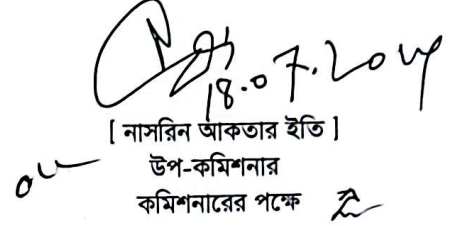 18.07.2024
[ নাসরিন আকতার ইতি ]
উপ-কমিশনার
কমিশনারের পক্ষে